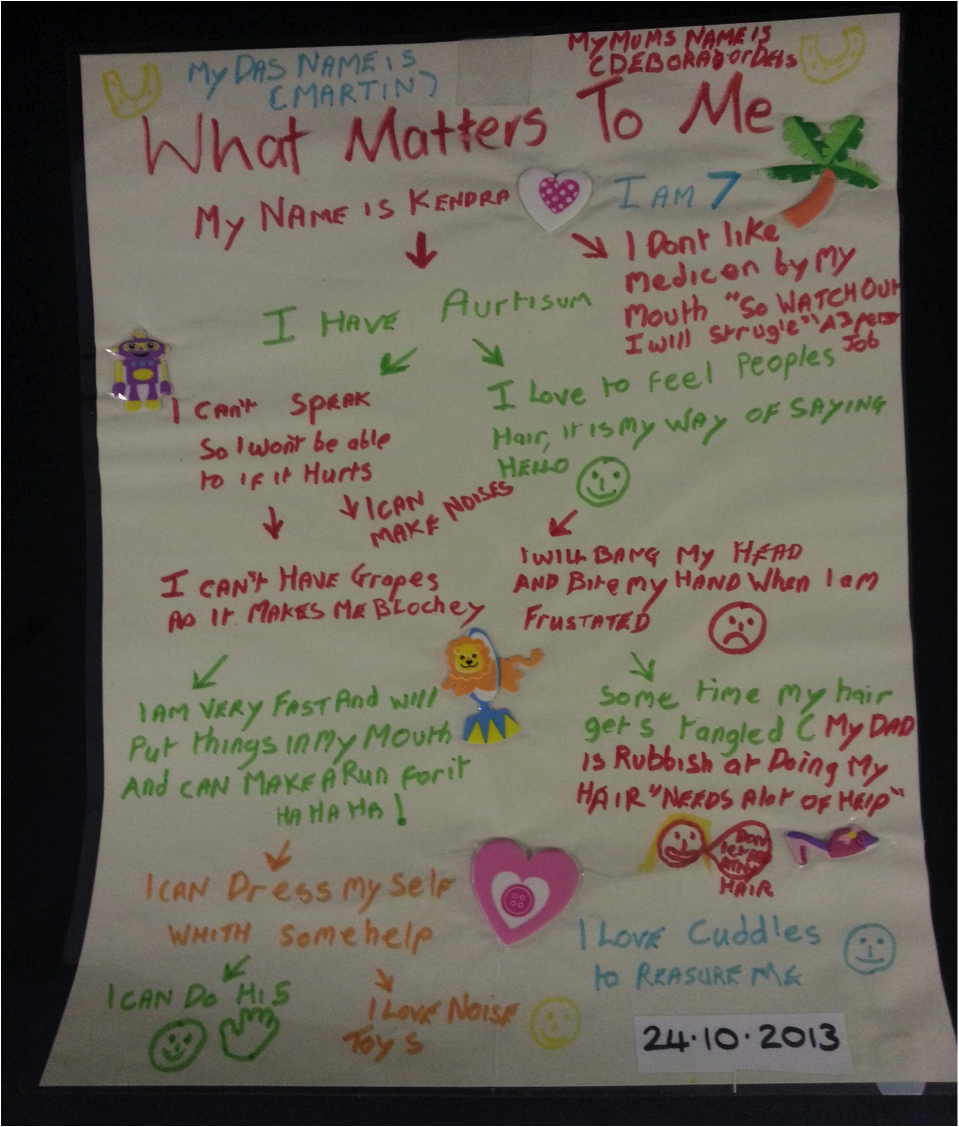 My DAS NAME iS
(MARTIN)
My MUMS NAME IS
(DEBORAh or Debs
What Matters To Me
My NAME iS KENDRA
I AM 7
I Dont like
medicen by My
Mouth "So WATCH OUT
I will Strugle" "A3 person
Job
I HAVE Aurtisum
I CAn't SPEAK
So I won't be able
to if it Hurts
I Love to Feel Peoples
Hair, it is my WAY OF SAYING
HELLO
I CAN
MAKE NOISES
I CAN't HAVE Grapes
AO It MAKES ME BLochey
I WILL BANG My HEAD
AND Bite my HAND When I am
FRUSTATED
I AM VERY FAST And will
Put things in My Mouth
And CAN MAKE A Run for it
HA HA HA!
Some time my hair
gets tangled ( My DAD
is Rubbish at Doing My
HAIR "NEEDS Alot OF HElP"
HAIR
I CAN Dress my Self
WHITH Some help
I LOVE Cuddles
to REASURE ME
I CAN Do Hi 5
I LOVE NOISE
Toys
24.10.2013